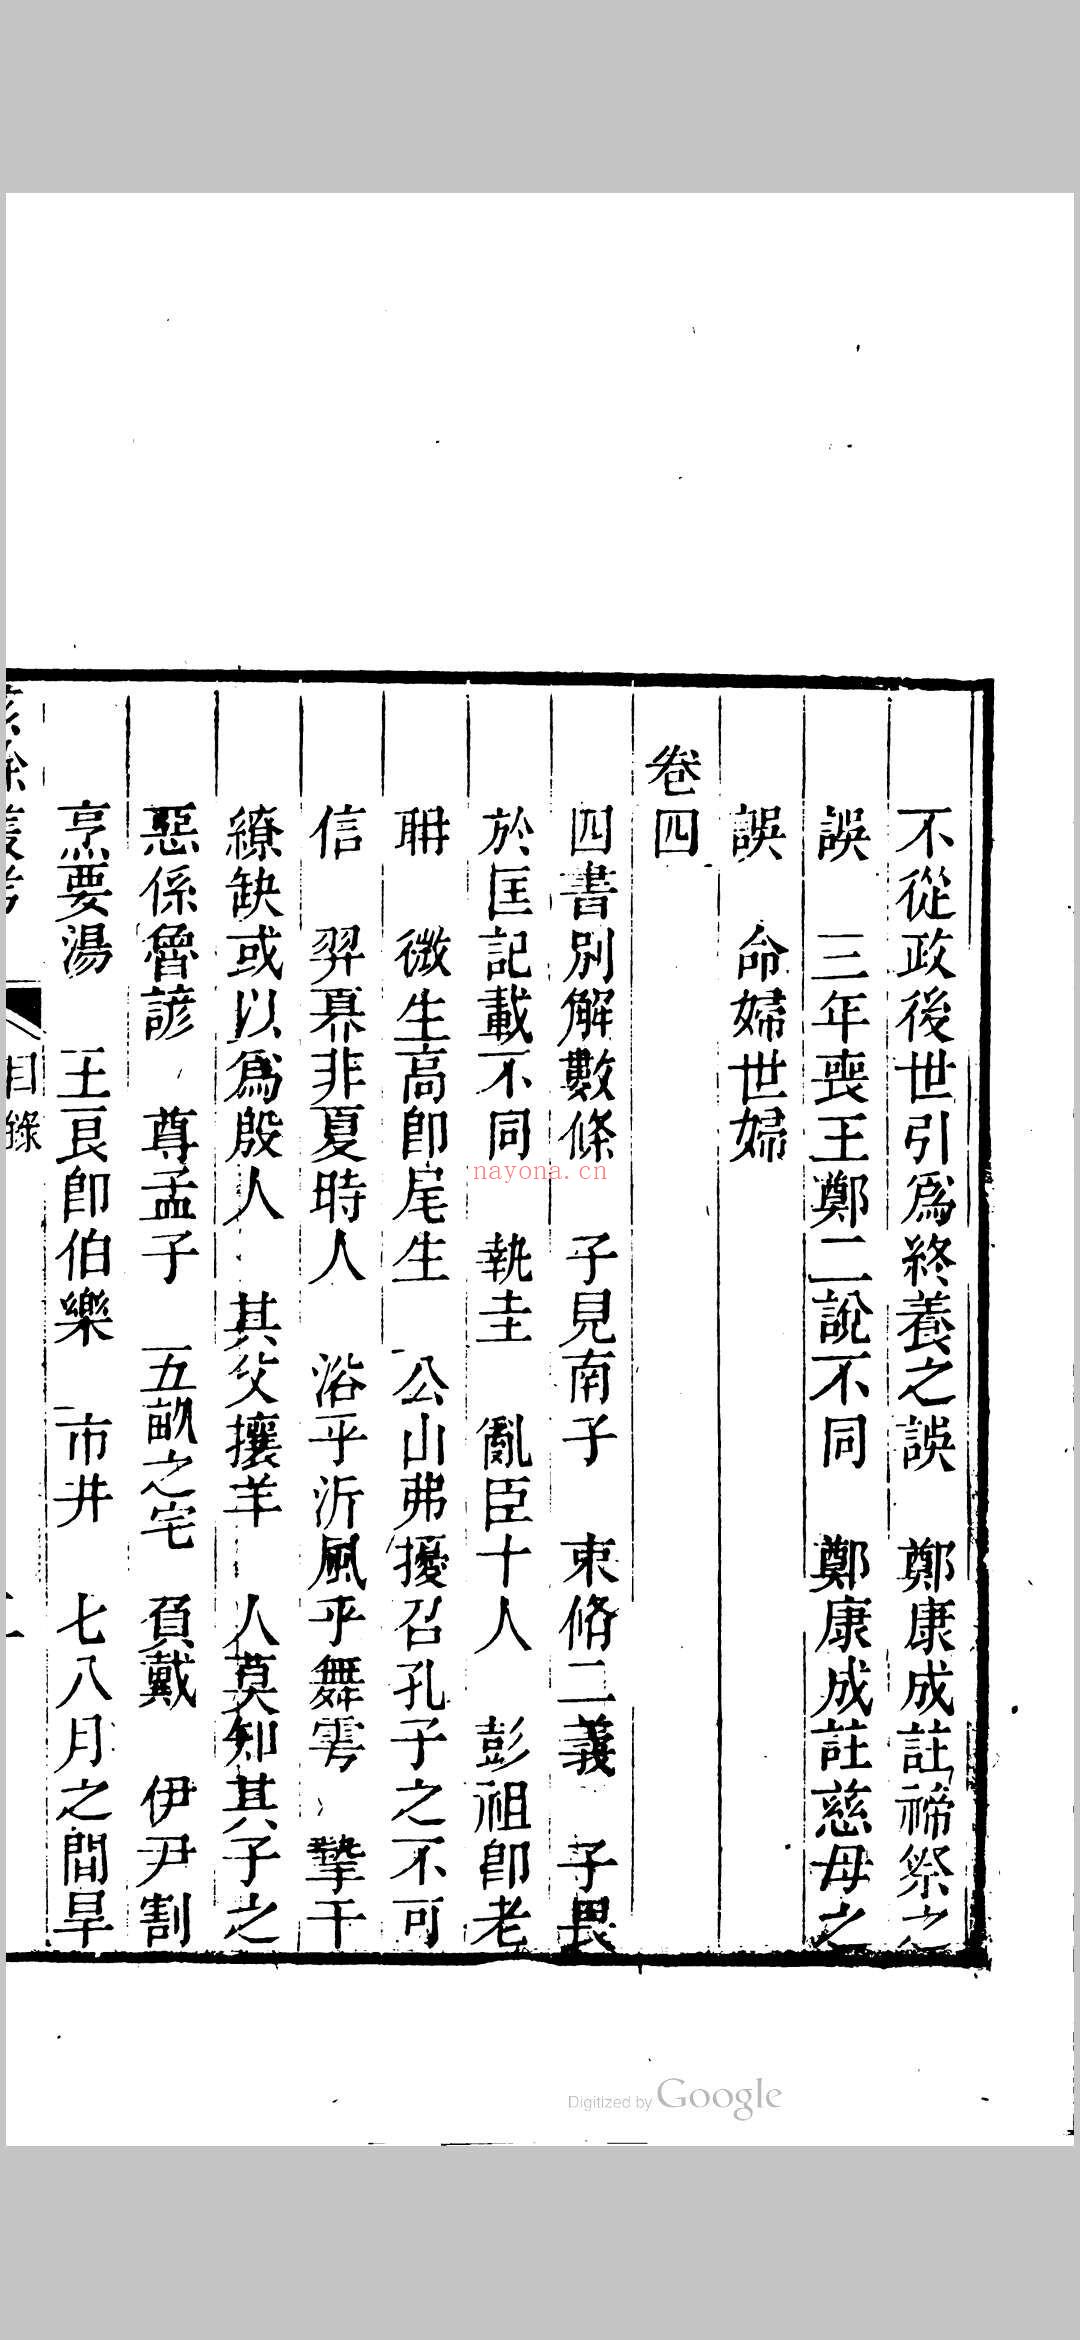 不從政後世引爲終養之誤　鄭康成註禘祭之
誤　三年喪王鄭二說不同　鄭康成註慈母之
誤　命婦世婦
卷四
四書別解數條　子見南子　束脩二義　子畏
於匡記載不同　執圭　亂臣十人　彭祖即老
聃　微生高即尾生　公山弗擾召孔子之不可
信　羿奡非夏時人　浴乎沂風乎舞雩　摯干
繚缺或以爲殷人　其父攘羊　人莫知其子之
惡係魯諺　尊孟子　五畝之宅　負戴　伊尹割
烹要湯　王良即伯樂　市井　七八月之間旱
目錄
nayona.cn
Digitized by Google